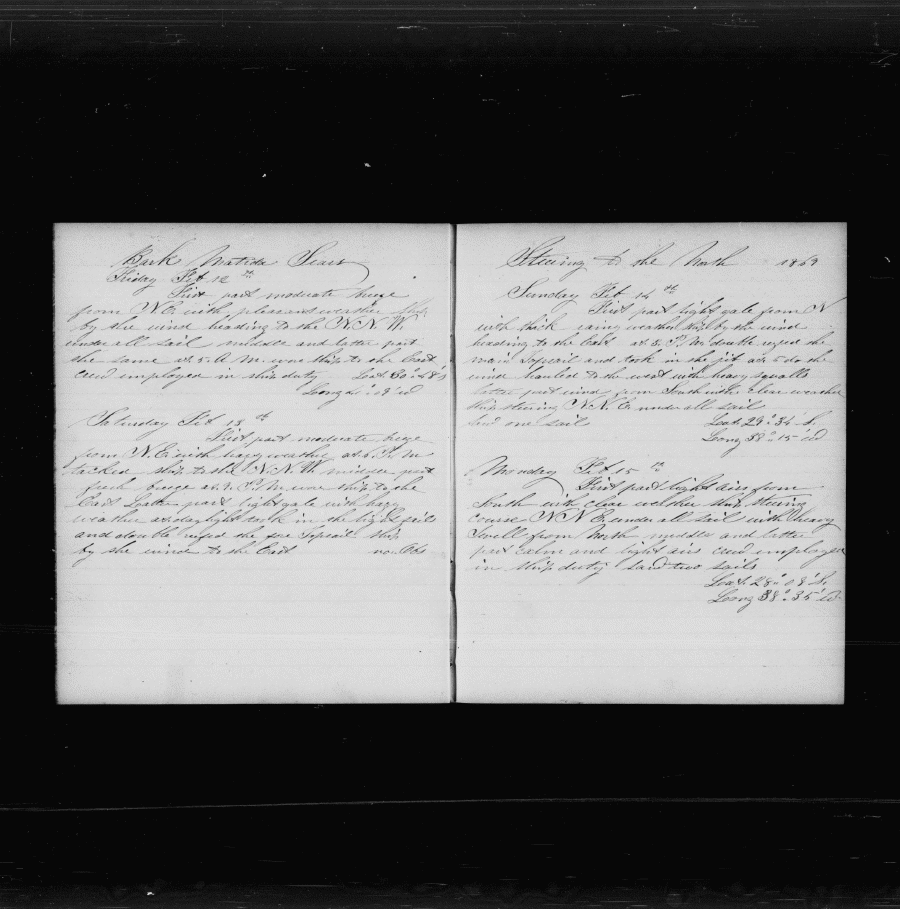 Bark Matilda Sears
Friday Feb 12th
First part moderate breze
from N.E. with pleasant weather Ship
by the wind heading to the N.N.W.
under all sail middle and latter part
the same at 5. A.M. wore ship to the East
crew employed in ship duty Lat. 30°
Long
Saturday Feb 13th
First part moderate breze
from N.E. with hazy weather at P.M
tacked ship to the N.N.W. middle part
fresh breeze at 9. P.M. wore ship to the
East Latter part light gale with hazy
weather at daylight took in the light sails
and double refed the fore Topsail Ship
by the wind to the East non Obs
Steering to the North 1869
Sunday Feb 14th
First part light gale from N
with thick rainy weather ship by the wind
heading to the East at 5. P.M. double refed the
main Topsail and took in the jib at 5 do the
wind hauled to the west with heavy squalls
latter part wind from South with clear weather
Ship steering N.N.E. under all sail
saw one sail Lat. 29° 34' S.
Long 38° 15' W
Monday Feb 15th
First part light airs from
South with clear weather ship steering
course N N E. under all sail with heavy
Swell from North middle and latter
part Calm and light airs crew employed
in ship duty saw two sails
Lat. 28° 08' S.
Long 38° 35' W.